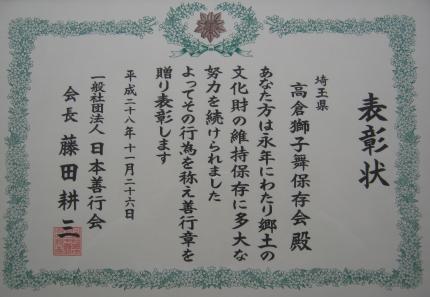 表彰状
埼玉県
高倉獅子舞保存会殿
あなた方は永年にわたり郷土の
文化財の維持保存に多大な
努力を続けられました
よってその行為を称え善行章を
贈り表彰します
平成二十八年十一月二十六日
一般社団法人日本善行会
会長 藤田耕三